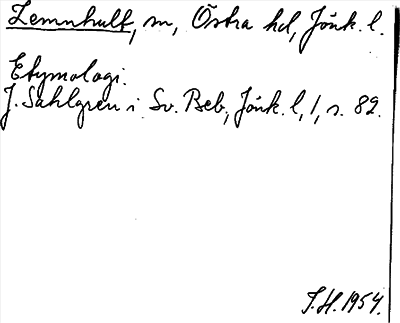 Lemnhult, sn, Östra hd, Jönk. l.
Etymologi.
J. Sahlgren i Sv. Beb., Jönk. l, 1, s. 82.
J.H. 1954.